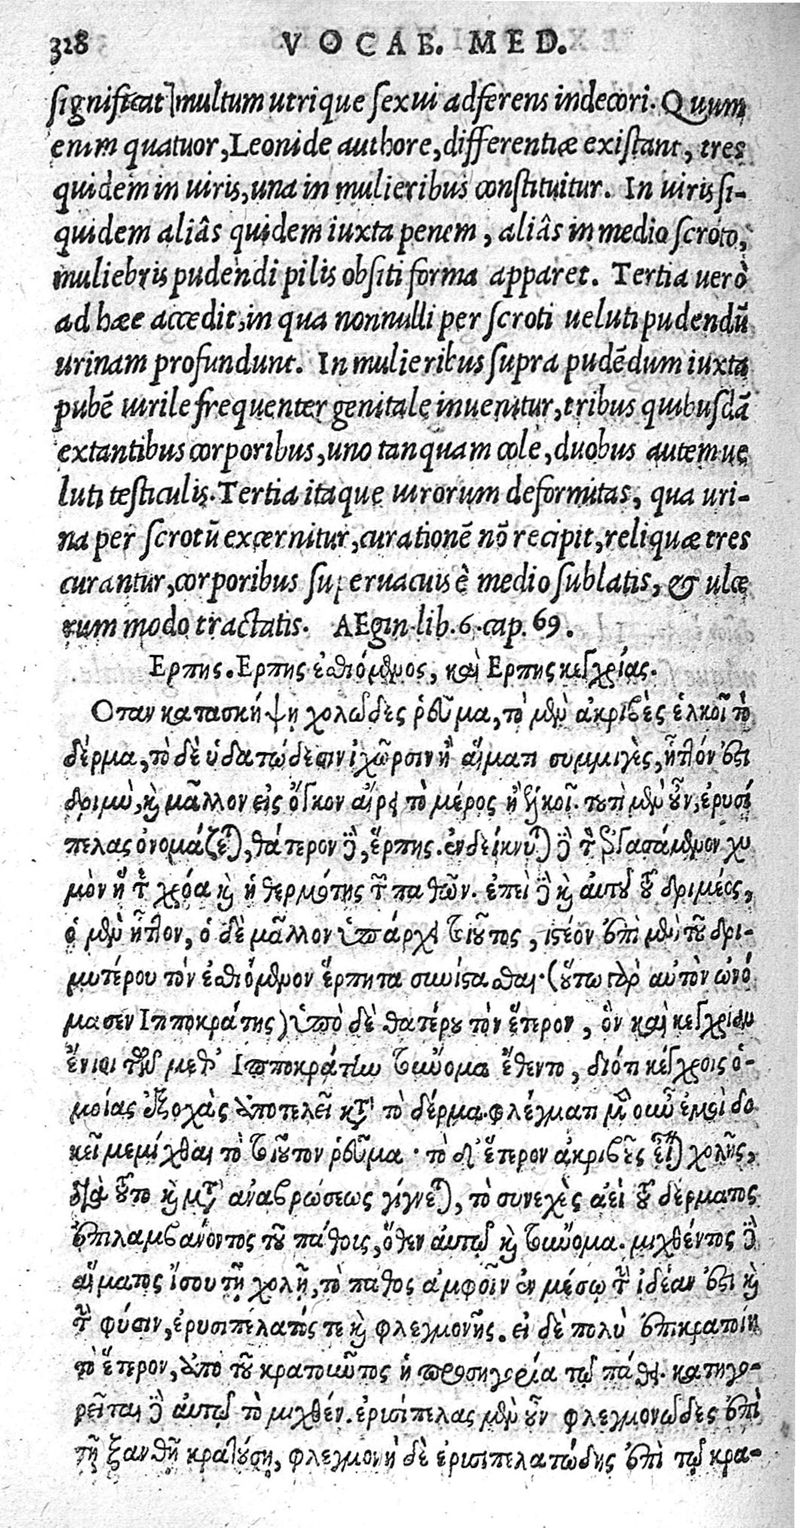 328 VOCAB. MED.
significat] multum utrique sexui adferens indecori. Quum
enim quatuor, Leonide authore, differentiæ existant, tres
quidem in uiris, una in mulieribus constituitur. In uiris si-
quidem aliâs quidem iuxta penem, aliâs in medio scroto,
muliebris pudendi pilis obsiti forma apparet. Tertia uerò
ad hæc accedit, in qua nonnulli per scroti ueluti pudendũ
urinam profundunt. In mulieribus supra pudẽdum iuxta
pubẽ uirile frequenter genitale inuenitur, tribus quibusdã
extantibus corporibus, uno tanquam cole, duobus autem ue
luti testiculis. Tertia itaque uirorum deformitas, qua uri-
na per scrotũ excernitur, curationẽ nõ recipit, reliquæ tres
curantur, corporibus superuacuis è medio sublatis, & ulce
rum modo tractatis. AEgin. lib. 6. cap. 69.
Ερπης. Ερπης ἐσθιόμενος, καὶ Ερπης κεγχρίας.
Οταν κατασκήψῃ χολῶδες ῥεῦμα, τὸ μὲν ἀκριβὲς ἑλκοῖ τὸ
δέρμα, τὸ δὲ ὑδατώδεσιν ἰχῶρσιν ἢ αἵματι συμμιγὲς, ἧττόν ἐστι
δριμὺ, καὶ μᾶλλον εἰς ὄγκον αἴρει τὸ μέρος ἢ ἑλκοῖ. τουτὶ μὲν οὖν, ἐρυσί
πελας ὀνομάζεται, θάτερον δὲ, ἕρπης. ἐνδείκνυται δὲ τὸ ἐργασάμενον χυ
μὸν ἥ τε χρόα καὶ ἡ θερμότης τῶν παθῶν. ἐπεὶ δὲ καὶ αὐτοῦ τοῦ δριμέος,
ὁ μὲν ἧττον, ὁ δὲ μᾶλλον ὑπάρχει τοιοῦτος, ἰστέον ἐπὶ μὲν τοῦ δρι-
μυτέρου τὸν ἐσθιόμενον ἕρπητα συνίστασθαι. (οὕτω γὰρ αὐτὸν ὠνό
μασεν Ιπποκράτης) ὑπὸ δὲ θατέρου τὸν ἕτερον, ὃν καὶ κεγχρίαν
ἔνιοι τῶν μεθ' Ιπποκράτην τοὔνομα ἔθεντο, διότι κέγχροις ὁ-
μοίας ἐξοχὰς ἀποτελεῖ κατὰ τὸ δέρμα. φλέγματι μὲν οὖν ἐμοὶ δο
κεῖ μεμίχθαι τὸ τοιοῦτον ῥεῦμα. τὸ δ' ἕτερον ἀκριβὴς εἶναι χολῆς,
διὰ τοῦτο καὶ μετ' ἀναβρώσεως γίγνεται, τὸ συνεχὲς ἀεὶ τοῦ δέρματος
ἐπιλαμβάνοντος τοῦ πάθους, ὅθεν αὐτῷ καὶ τοὔνομα. μιχθέντος δὲ
αἵματος ἴσου τῇ χολῇ, τὸ πάθος ἀμφοῖν ἐν μέσῳ τὴν ἰδέαν ἐστὶ καὶ
τὴν φύσιν, ἐρυσιπέλατός τε καὶ φλεγμονῆς. εἰ δὲ πολὺ ἐπικρατοίη
τὸ ἕτερον, ἀπὸ τοῦ κρατοῦντος ἡ προσηγορία τῷ πάθει. κατηγο-
ρεῖται δὲ αὐτῷ τὸ μιχθέν. ἐρισίπελας μὲν οὖν φλεγμονῶδες ἐπὶ
τῇ ξανθῇ κρατούσῃ, φλεγμονὴ δὲ ἐρισιπελατώδης ἐπὶ τῷ κρα-